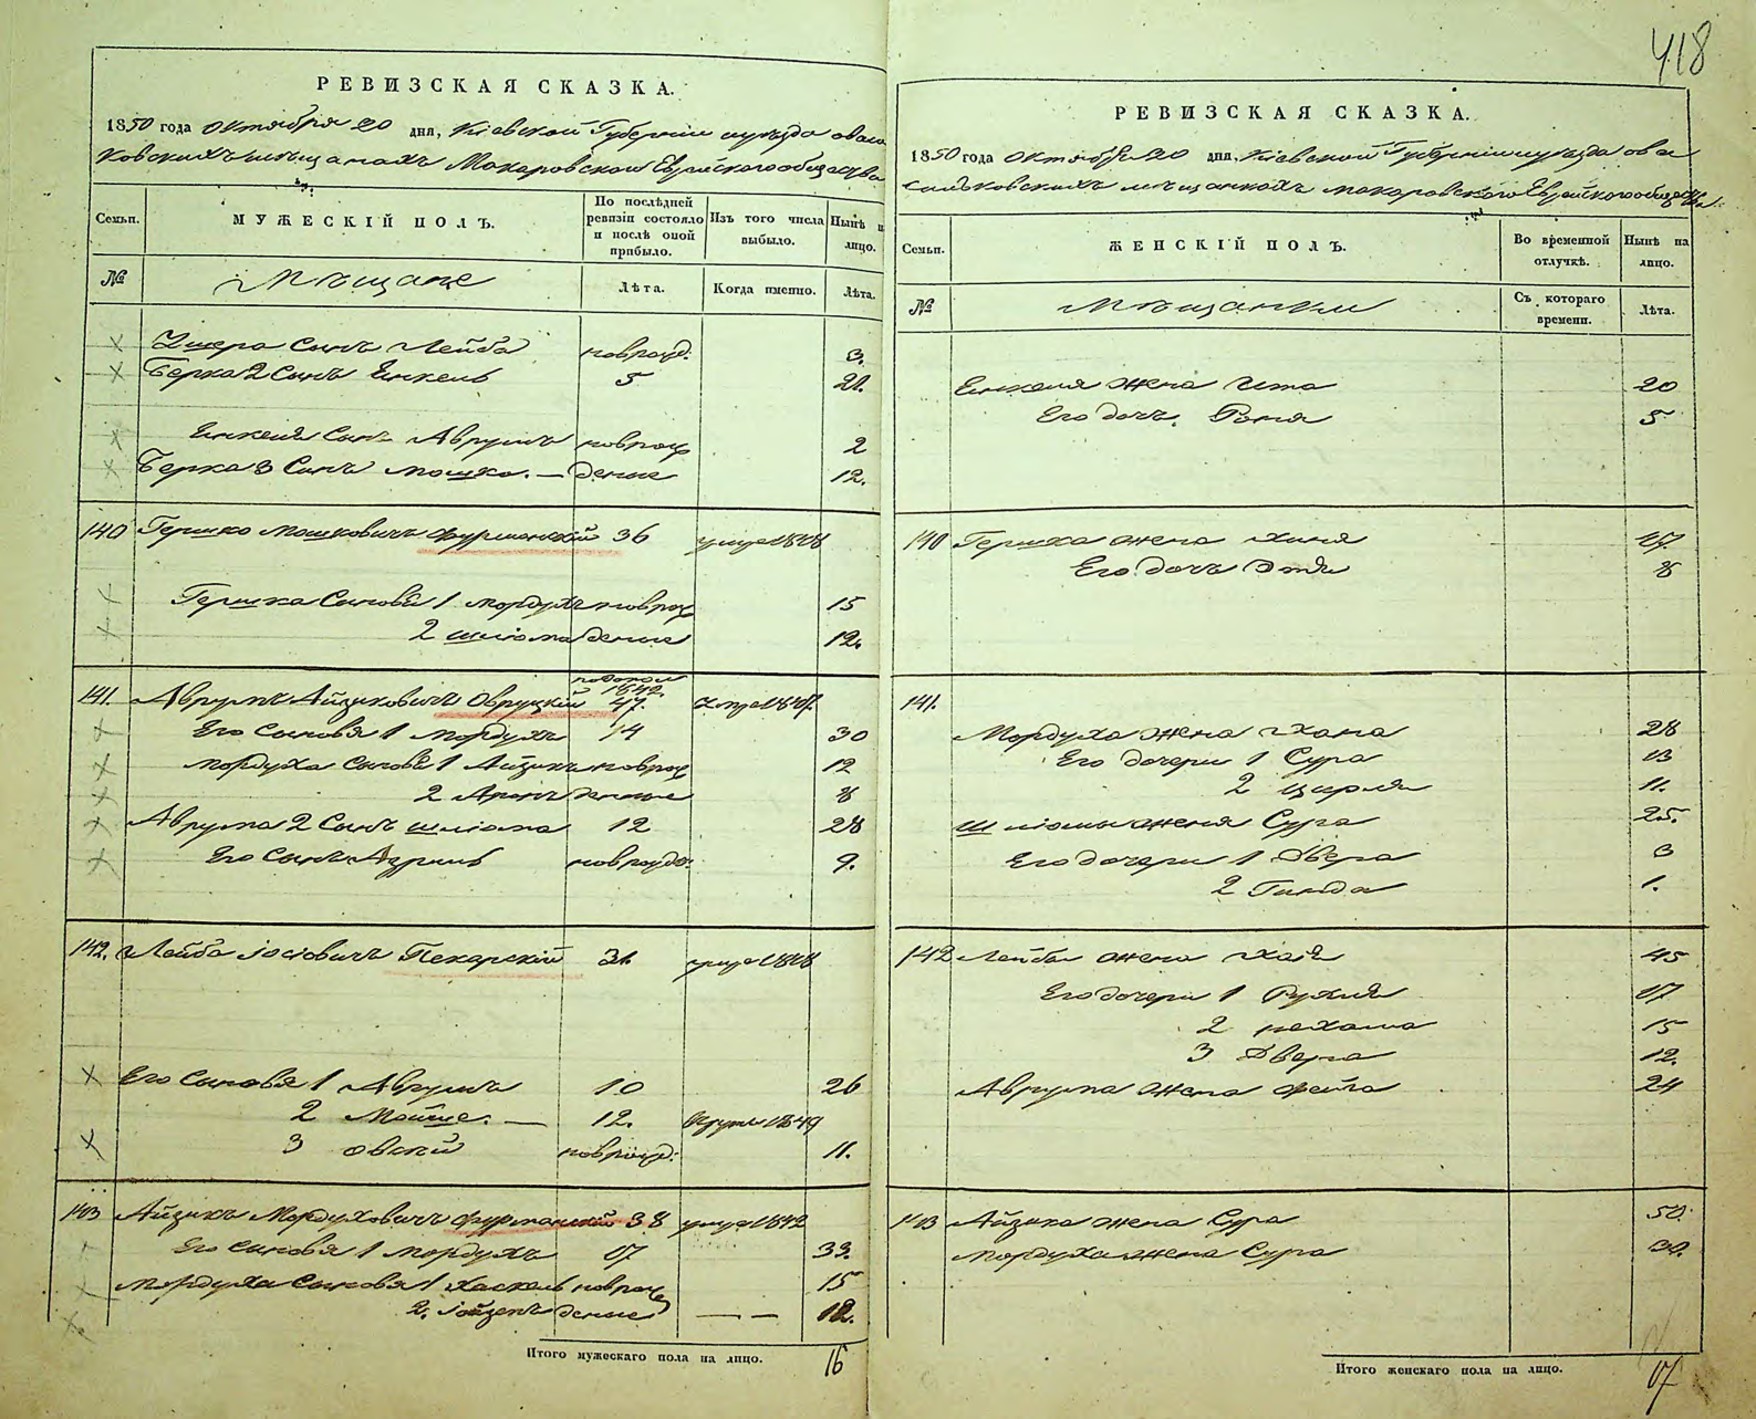 418
РЕВИЗСКАЯ СКАЗКА.
1850 года Октября 20 дня, Кіевской Губерніи уѣзда о васил
ковскихъ мѣщанахъ Макаровскаго Еврейскаго общества
Семьи. МУЖЕСКІЙ ПОЛЪ. По послѣдней ревизіи состояло и послѣ оной прибыло. Изъ того числа выбыло. Нынѣ н лицо.
№ Мѣщане Лѣта. Когда именно. Лѣта.
сынъ Лейба новрожд: 3.
Берка 2 сынъ Янкель 5 21.
Янкеля сынъ Аврумъ новрож 2
Берка 3 сынъ Мошко. — денные 12.
140 Гершко Мошковичъ Фурманскій 36 умре 1848
Гершка сыновья 1 Мордухъ новрож 15
2 Шліома денные 12.
141. Аврумъ Айзиковичъ Овруцкій 1842. 47. умре 1847.
Его сыновья 1 Мордухъ 14 30
Мордуха сыновья 1 Айзикъ новрож 12
2 Аронъ денные 8
Аврума 2 сынъ Шліома 12 28
Его сынъ Азриль новрожд: 9.
142. Лейба Іосіовичъ Пекарскій 31. умре 1848
Его сыновья 1 Аврумъ 10 26
2 Мойше. — 12. 1849
3 Овсей новрожд: 11.
143 Айзикъ Мордуховичъ Фурманскій 38 умре 1842
Его сыновья 1 Мордухъ 17 33.
Мордуха сыновья 1 Хаскель новрож 15
2. Іойзепъ денные — — 12.
Итого мужескаго пола на лицо. 16
РЕВИЗСКАЯ СКАЗКА.
1850 года Октября 20 дня, Кіевской Губерніи уѣзда о ва
сильковскихъ мѣщанкахъ Макаровскаго Еврейскаго общества
Семьи. ЖЕНСКІЙ ПОЛЪ. Во временной отлучкѣ. Нынѣ на лицо.
№ Мѣщанки Съ котораго времени. Лѣта.
Янкеля жена Ита 20
Его дочь Рони 5
140 Гершка жена Хиня 47.
Его дочь Этля 8
141.
Мордуха жена Хана 28
Его дочери 1 Сура 13
2 Цирля 11.
Шліомы жена Сура 25.
Его дочери 1 Двера 3
2 Гинда 1.
142 Лейбы жена Хая 45
Его дочери 1 Рухля 17
2 Нехама 15
3 Двера 12.
Аврума жена Фейга 24
143 Айзика жена Сура 50.
Мордуха жена Сура 30.
Итого женскаго пола на лицо. 17